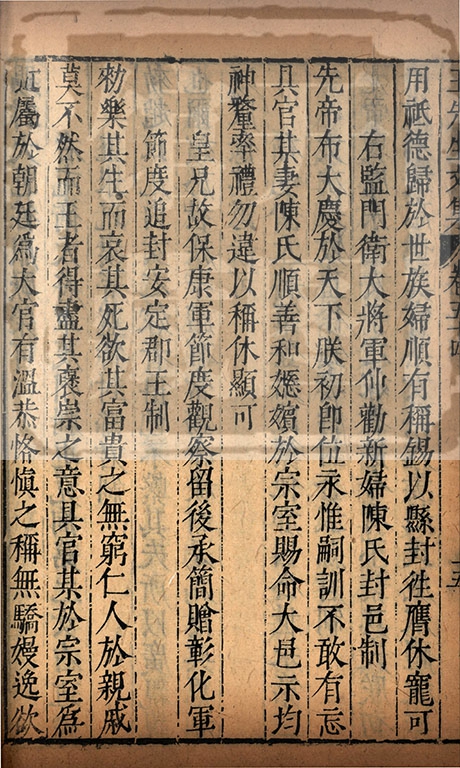 王先生文集 卷五十四 十五
用祗德歸於世族婦順有稱錫以縣封徃膺休寵可
右監門衛大將軍仲勸新婦陳氏封邑制
先帝布大慶於天下朕初卽位永惟嗣訓不敢有忘
具官某妻陳氏順善和嫕嬪於宗室賜命大邑示均
神釐率禮勿違以稱休顯可
皇兄故保康軍節度觀察留後承簡贈彰化軍
節度追封安定郡王制
勑樂其生而哀其死欲其富貴之無窮仁人於親戚
莫不然而王者得盡其褒崇之意具官某於宗室爲
近屬於朝廷爲大官有溫恭恪愼之稱無驕嫚逸欲